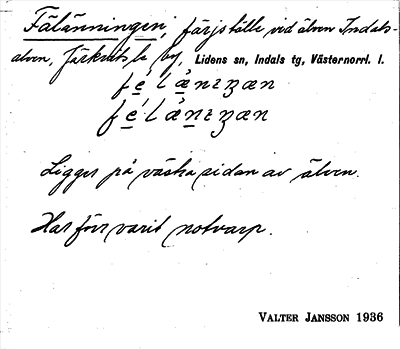 Fälänningen, färjställe vid älven Indals-
älven, Järkvitsle by, Lidens sn, Indals tg, Västernorrl. l.
Ligger på västra sidan av älven.
Har förr varit notvarp.
VALTER JANSSON 1936